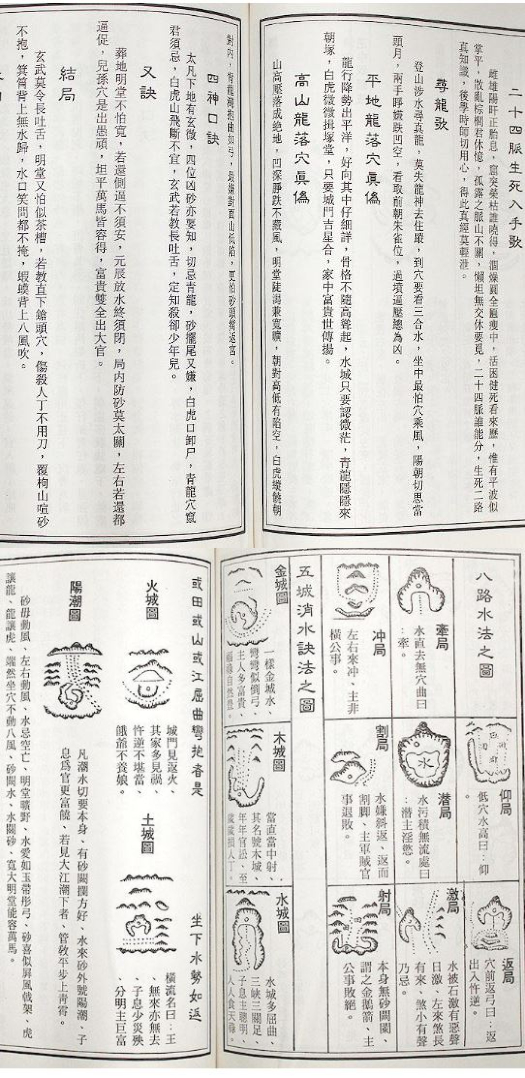 二十四脈生死入手歌
雌雄陽旰正胎息
平，散亂棕櫚君休憶，孤露之脈山不關，懶坦無交休要覓，二十四脈誰能分，生死二路
真知識，後學時師切用心，得此真經莫輕泄。
尋龍歌
登山涉水尋真龍，莫失龍神去住蹤，到穴要看三合水，坐中最怕穴乘風，陽朝切思當
頭月，兩手睜嫌跌凹空，看取前朝朱雀位，過墳逼壓總為凶。
平地龍落穴真僞
龍行降勢出平洋，好向其中仔細詳，骨格不隨高聳起，水城只要認微茫，青龍隱隱來
朝塚，白虎微微揖塚堂，只要城門吉星合，家中富貴世傳揚。
高山龍落穴真僞
山高壓落成絶地，凹深睜跌不藏風，明堂陡瀉兼寬曠，朝對高低有陷空，白虎
四神口訣
太凡下地有玄微，四位凶砂亦要知，切忌青龍，砂擺尾又嫌，白虎口卸尸，青龍穴竄
君須忌，白虎山飛斷不宜，玄武若教長吐舌，定知殺卻少年兒。
又訣
葬地明堂不怕寬，若還側逼不須安，元辰放水終須閉，局內防砂莫太關，左右若還都
逼促，兒孫穴是出愚頑，坦平萬馬皆容得，富貴雙全出大官。
結局
玄武莫令長吐舌，明堂又怕似茶槽，若教直下鎗頭穴，傷殺人丁不用刀，覆栲山喧砂
不抱，箕筲背上無水歸，水口笑問都不掩，蝦蟆背上八風吹。
八路水法之圖
牽局
水直去無穴曲曰
：牽。
冲局
左右來冲、主非
橫公事。
仰局
低穴水高曰：仰
。
潜局
水污積無流處曰
：潜主淫慾。
割局
水嫌斜返、返而
割脚、主軍賊官
事退敗。
返局
穴前返弓曰：返
出入忤逆。
激局
水被石激有惡聲
曰激、左來煞長
有來、煞小有聲
乃忌。
射局
本身無砂關闌、
謂之金鵝箭、主
公事敗絕。
五城消水訣法之圖
金城圖
一樣金城水、
彎彎似倒弓、
主人多富貴、
木城圖
當直當中射、
其名號木城、
年年官訟、至
水城圖
水城多屈曲、
三峽三關足、
子息主聰明、
人人食天祿。
或田或山或江屈曲彎抱者是
坐下水勢如返
火城圖
城門見返火、
其家多見禍、
忤逆不堪當、
餓爺不養娘。
土城圖
橫流名曰：王
、無來亦無去
、子息少災殃
、分明主巨富
陽潮圖
凡潘水切要本身、有砂闌攔方好、水來砂外號陽潮、子
息為官更富饒、若見大江潮下者、管敎平步上青霄。
砂毋動風、左右動風、水忌空亡、明堂曠野、水愛如玉帶形弓、砂喜似屏風戟架、虎
讓龍、龍讓虎、端然坐穴不動八風、砂關水、水關砂、寬大明堂能容萬馬。